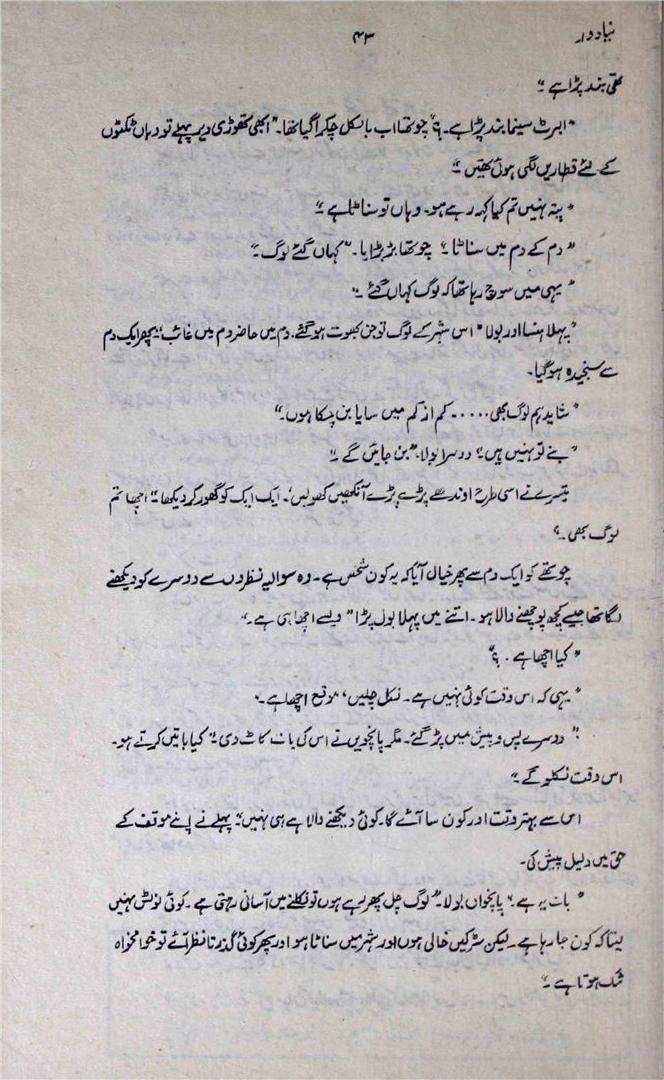 نیا دور
۴۳
بھی بند پڑا ہے۔"
"ایرٹ سینما بند پڑا ہے۔؟" چوتھا اب بالکل چکرا گیا تھا۔ "ابھی تھوڑی دیر پہلے تو وہاں ٹکٹوں
کے لئے قطاریں لگی ہوئی تھیں۔"
"پتہ نہیں تم کیا کہہ رہے ہو۔ وہاں تو سناٹا ہے۔"
"دم کے دم میں سناٹا۔" چوتھا بڑبڑایا۔ "کہاں گئے لوگ۔"
"یہی میں سوچ رہا تھا کہ لوگ کہاں گئے۔"
"پہلا ہنسا اور بولا "اس شہر کے لوگ تو جن بھوت ہو گئے۔ دم میں حاضر دم میں غائب" پھر ایک دم
سے سنجیدہ ہو گیا۔
"شاید ہم لوگ بھی ۔۔۔۔۔ کم از کم میں سایا بن چکا ہوں۔"
"بنے تو نہیں ہیں" دوسرا بولا۔ "بن جائیں گے۔"
تیسرے نے اسی طرح اوندھے پڑے پڑے آنکھیں کھولیں۔ ایک ایک کو گھور کر دیکھا "اچھا تم
لوگ بھی۔"
چوتھے کو ایک دم سے پھر خیال آیا کہ یہ کون شخص ہے۔ وہ سوالیہ نظروں سے دوسرے کو دیکھنے
لگا تھا جیسے کچھ پوچھنے والا ہو۔ اتنے میں پہلا بول پڑا "ویسے اچھا ہی ہے۔"
"کیا اچھا ہے۔؟"
"یہی کہ اس وقت کوئی نہیں ہے۔ نکل چلیں، موقع اچھا ہے۔"
"دوسرے پس و پیش میں پڑ گئے۔ مگر پانچویں نے اس کی بات کاٹ دی "کیا باتیں کرتے ہو۔
اس وقت نکلو گے۔"
اس سے بہتر وقت اور کون سا آئے گا۔ کوئی دیکھنے والا ہے ہی نہیں" پہلے نے اپنے موقف کے
حق میں دلیل پیش کی۔
"بات یہ ہے" پانچواں بولا۔ "لوگ چل پھر رہے ہوں تو نکلنے میں آسانی رہتی ہے۔ کوئی نوٹس نہیں
لیتا کہ کون جا رہا ہے۔ لیکن سڑکیں خالی ہوں اور شہر میں سناٹا ہو اور پھر کوئی گذرتا نظر آئے تو خوامخواہ
شک ہوتا ہے۔"